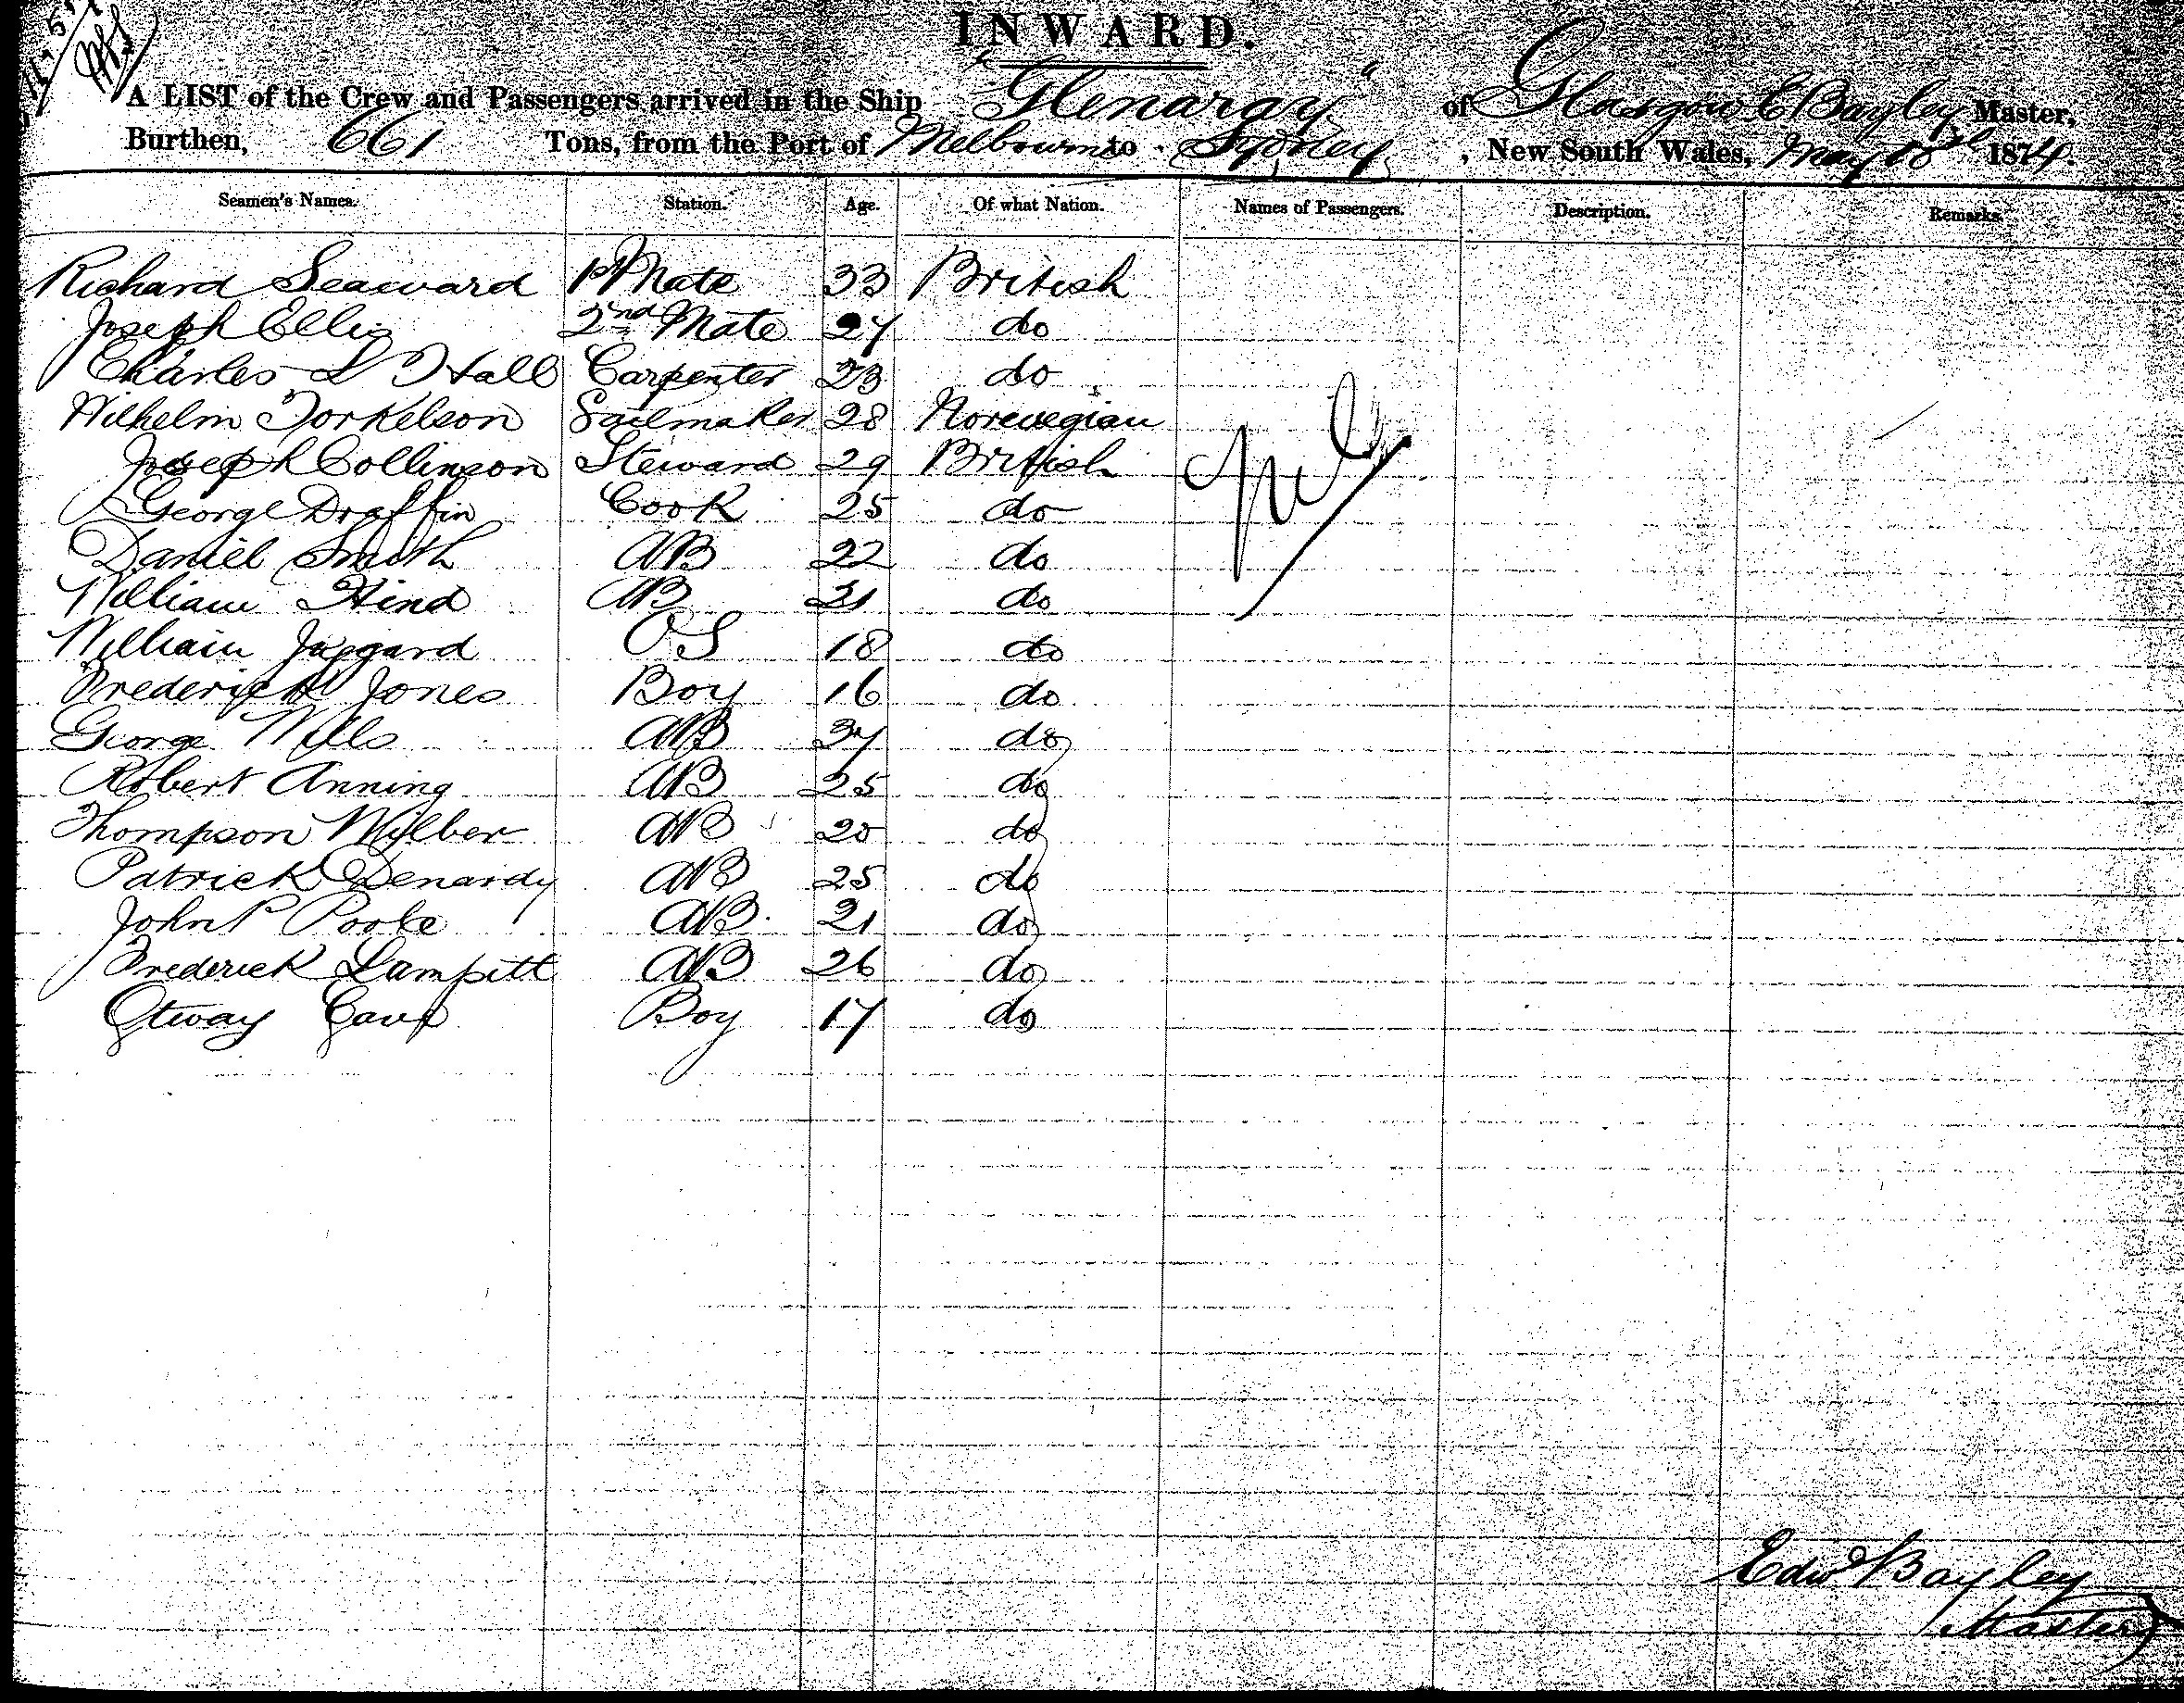 INWARD.
A LIST of the Crew and Passengers arrived in the Ship "Glenaray" of Glasgow E Bayley Master,
Burthen, 661 Tons, from the Port of Melbourne to Sydney, New South Wales, May 1874.
Seamen's Names. Station. Age. Of what Nation. Names of Passengers. Description. Remarks.
Richard Seaward 1st Mate 33 British
Joseph Ellis 2nd Mate 27 do
Charles L Hall Carpenter 23 do
Wilhelm Torkelson Sailmaker 28 Norwegian
Joseph Collinson Steward 29 British Nil
George Draffin Cook 25 do
Daniel Smith AB 22 do
William Hind AB 31 do
William Jaggard OS 18 do
Frederick Jones Boy 16 do
George Mills AB 37 do
Robert Anning AB 25 do
Thompson Wilber AB 20 do
Patrick Denardy AB 25 do
John P Poole AB 21 do
Frederick Lampitt AB 26 do
Otway Cave Boy 17 do
Edwd Bayley
Master